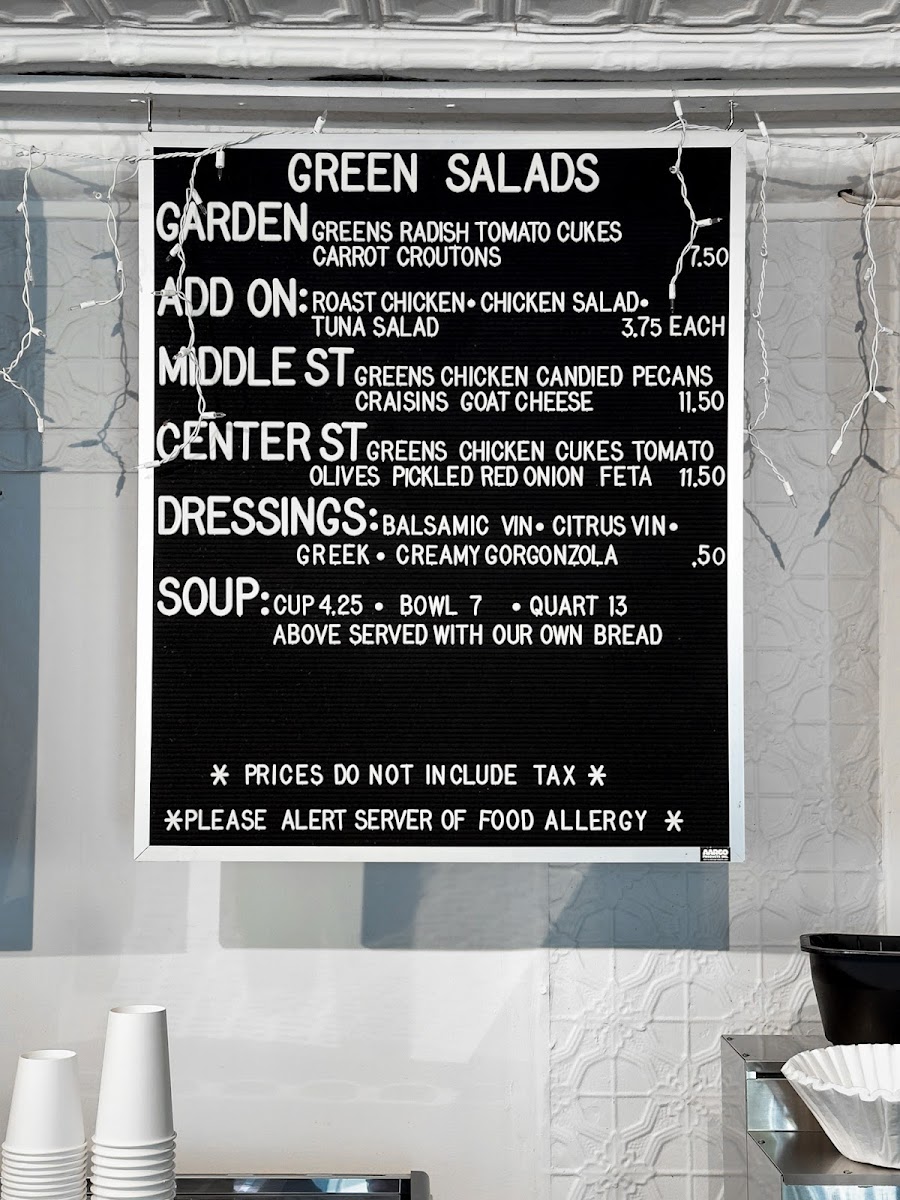 GREEN SALADS
GARDEN GREENS RADISH TOMATO CUKES
CARROT CROUTONS 7.50
ADD ON: ROAST CHICKEN• CHICKEN SALAD•
TUNA SALAD 3.75 EACH
MIDDLE ST GREENS CHICKEN CANDIED PECANS
CRAISINS GOAT CHEESE 11.50
CENTER ST GREENS CHICKEN CUKES TOMATO
OLIVES PICKLED RED ONION FETA 11.50
DRESSINGS: BALSAMIC VIN• CITRUS VIN•
GREEK• CREAMY GORGONZOLA .50
SOUP: CUP 4.25 • BOWL 7 • QUART 13
ABOVE SERVED WITH OUR OWN BREAD
* PRICES DO NOT INCLUDE TAX *
*PLEASE ALERT SERVER OF FOOD ALLERGY *
AARCO